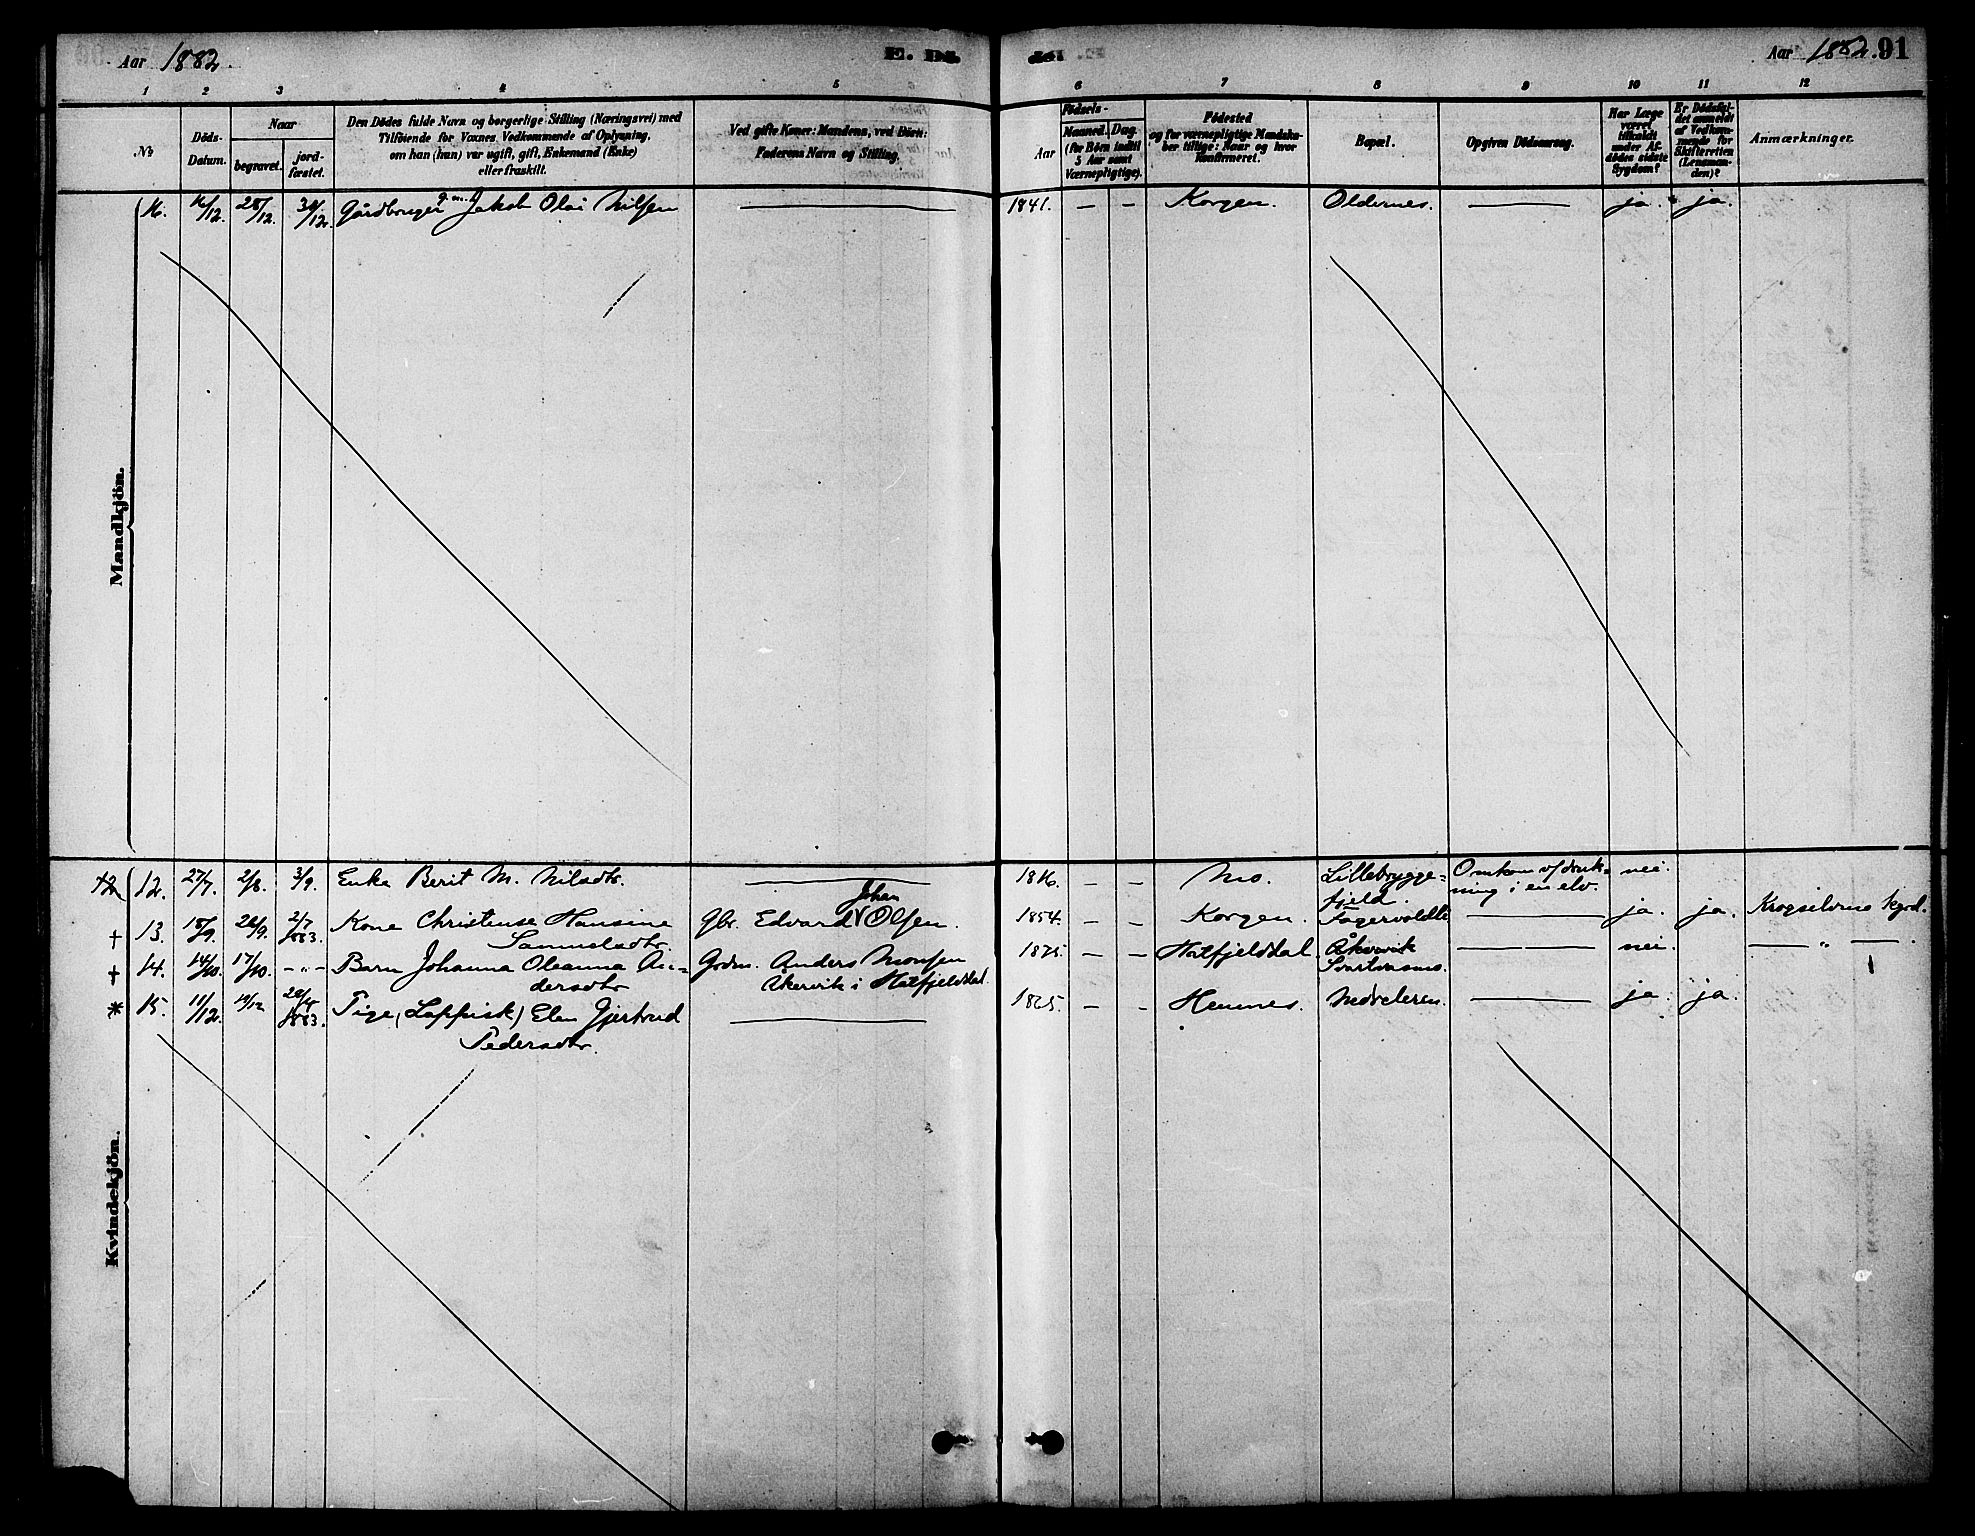 Aar 1882.
E. Dö
Aar 1882. 91
1 2 3 4 5 6 7 8 9 10 11 12
No.
Döds-Datum.
Naar
begravet.
jord-fæstet.
Den Dödes fulde Navn og borgerlige Stilling (Næringsvei) med
Tilföiende for Voxnes Vedkommende af Oplysning,
om han (hun) var ugift, gift, Enkemand (Enke)
eller fraskilt.
Ved gifte Koner: Mandens, ved Börn:
Faderens Navn og Stilling.
Aar
Födsels-
Maaned. Dag.
(for Börn indtil
5 Aar samt
Værnepligtige).
Födested
og for værnepligtige Mandska-
ber tillige: Naar og hvor
konfirmeret.
Bopæl.
Opgiven Dödsaarsag.
Har Læge
været
tilkaldt
under Af-
dödes sidste
Sygdom?
Er Dödsfal-
det anmeldt
af Vedkom-
mende for
Skifteretten
(Lensman-
den)?
Anmærkninger.
Mandkjön.
16. 16/12 28/12. 30/12. Gårdbruger g.m. Jakob Olai Nilsen — 1841. — — Korgen. Oldernes. — ja. ja.
Kvindekjön.
12. 27/7. 2/8. 3/9. Enke Berit M. Nilsdtr. — 1816. — — Mo. Lillebrygge-
fjeld. Omkom v/ druk-
ning i en elv. nei.
† 13. 18/9. 26/9. 2/7 1883. Kone Christense Hansine
Samuelsdtr. Gbr. Edvard Johan Olsen. 1854. — — Korgen. Fagervoldli — ja. ja. Krogselvens kgrd.
† 14. 14/10. 17/10. - " - Barn Johanna Oleanna An-
dersdtr Grdm. Anders Monsen
Akervik i Hatfjelddal. 1875. — — Hatfjelddal. Åkervik
Svartvasmo. — nei. — " —.
* 15. 11/12. 19/12 1883. Pige (Lappisk) Elen Gjertrud
Pedersdtr. — 1865. — — Hemnes. Nedreleren. — ja. ja.